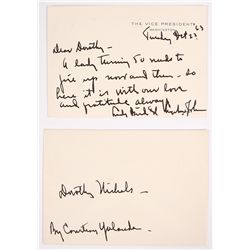 THE VICE PRESIDENT
WASHINGTON
Tuesday Oct 22 63
Dear Dorothy —
A lady turning 50 needs to
give up now and then — so
here it is with our love
and gratitude always
Lady Bird &
Dorothy Nichols —
By Courtesy